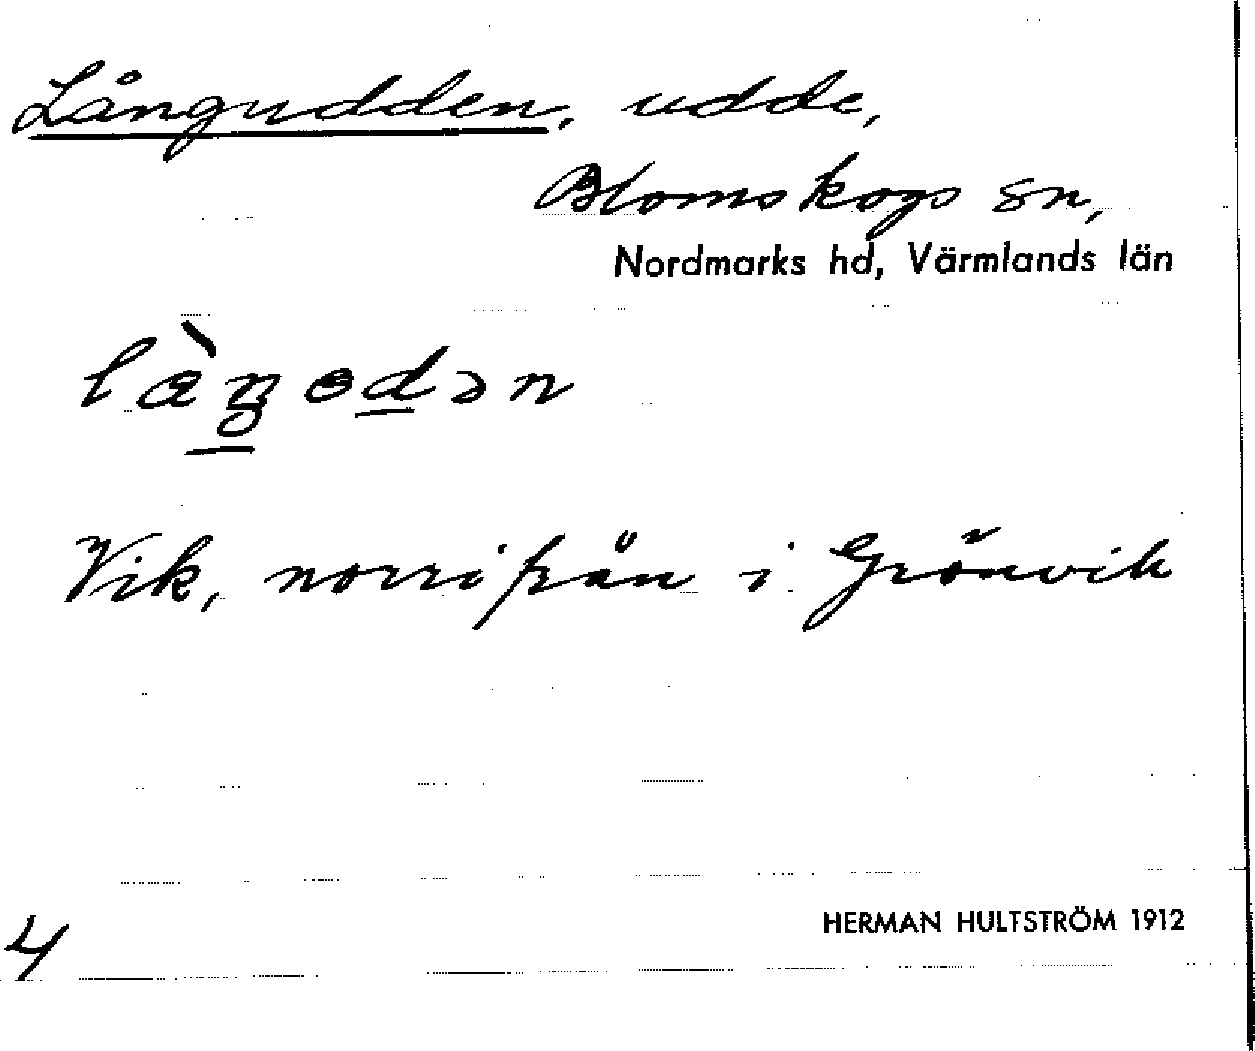 Långudden, udde,
Blomskogs sn,
Nordmarks hd, Värmlands län
Vik, norrifrån i Grönvik
4
HERMAN HULTSTRÖM 1912